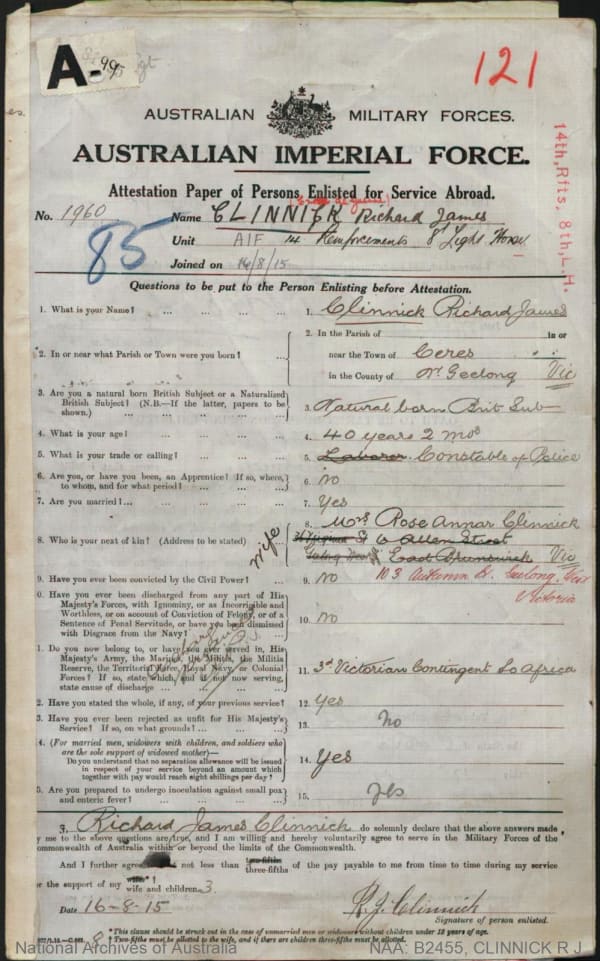 A-995
121
AUSTRALIAN MILITARY FORCES.
AUSTRALIAN IMPERIAL FORCE.
Attestation Paper of Persons Enlisted for Service Abroad.
14th, Rfts, 8th, L.H.
No. 1960 Name CLINNICK Richard James
85
Unit AIF 14 Reinforcements 8th Light Horse
Joined on 16/8/15
Questions to be put to the Person Enlisting before Attestation.
1. What is your Name? ... 1. Clinnick Richard James
2. In or near what Parish or Town were you born? ... 2. In the Parish of in or
near the Town of Ceres " "
in the County of Nr Geelong Vic
3. Are you a natural born British Subject or a Naturalized
British Subject? (N.B.—If the latter, papers to be
shown.) 3. Natural born Brit Sub
4. What is your age? 4. 40 years 2 mos
5. What is your trade or calling? 5. Laborer Constable of Police
6. Are you, or have you been, an Apprentice? If so, where,
to whom, and for what period? 6. no
7. Are you married? ... 7. Yes
8. Who is your next of kin? (Address to be stated) wife 8. Mrs Rose Annar Clinnick
Allen Street
East Brunswick Vic
103 Autumn St. Geelong West
Victoria
9. Have you ever been convicted by the Civil Power? 9. No
0. Have you ever been discharged from any part of His
Majesty's Forces, with Ignominy, or as Incorrigible and
Worthless, or on account of Conviction of Felony, or of a
Sentence of Penal Servitude, or have you been dismissed
with Disgrace from the Navy? 10. No
1. Do you now belong to, or have you ever served in, His
Majesty's Army, the Marines, the Militia, the Militia
Reserve, the Territorial Force, Royal Navy or Colonial
Forces? If so, state which, and if not now serving,
state cause of discharge 11. 3rd Victorian Contingent So Africa
2. Have you stated the whole, if any, of your previous service? 12. Yes
3. Have you ever been rejected as unfit for His Majesty's
Service? If so, on what grounds? 13. No
4. (For married men, widowers with children, and soldiers who
are the sole support of widowed mother)—
Do you understand that no separation allowance will be issued
in respect of your service beyond an amount which
together with pay would reach eight shillings per day? 14. Yes
5. Are you prepared to undergo inoculation against small pox
and enteric fever? 15. Yes
I, Richard James Clinnick do solemnly declare that the above answers made
y me to the above questions are true, and I am willing and hereby voluntarily agree to serve in the Military Forces of the
ommonwealth of Australia within or beyond the limits of the Commonwealth.
And I further agree not less than two-fifths three-fifths of the pay payable to me from time to time during my service
or the support of my wife* wife and children 3.
Date 16-8-15 R. J. Clinnick
Signature of person enlisted.
*This clause should be struck out in the case of unmarried men or widowers without children under 18 years of age.
†Two-fifths must be allotted to the wife, and if there are children three-fifths must be allotted.
National Archives of Australia NAA: B2455, CLINNICK R J